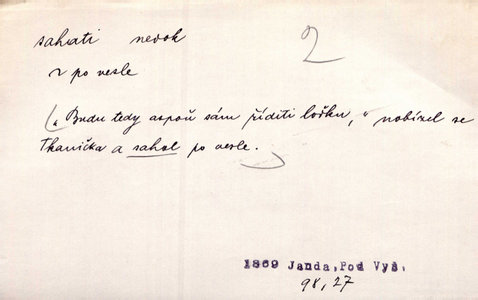 sahati nedok
2
~ po vesle
(„Budu tedy aspoň sám říditi loďku,“ nabízel se
Tkanička a sahal po vesle.)
1869 Janda, Pod Vyš.
98, 27